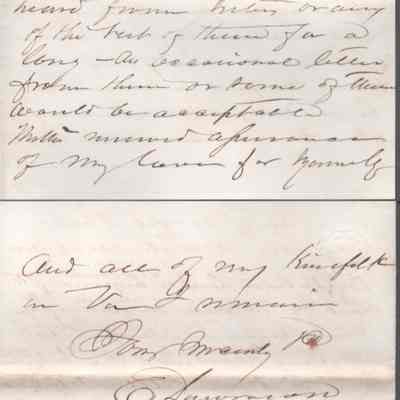 heard from sister or any
of the rest of them for a
long – An occasional letter
from them or some of them
would be acceptable
With renewed assurance
of my love for yourself
And all of my kinsfolk
in Va I remain
Your